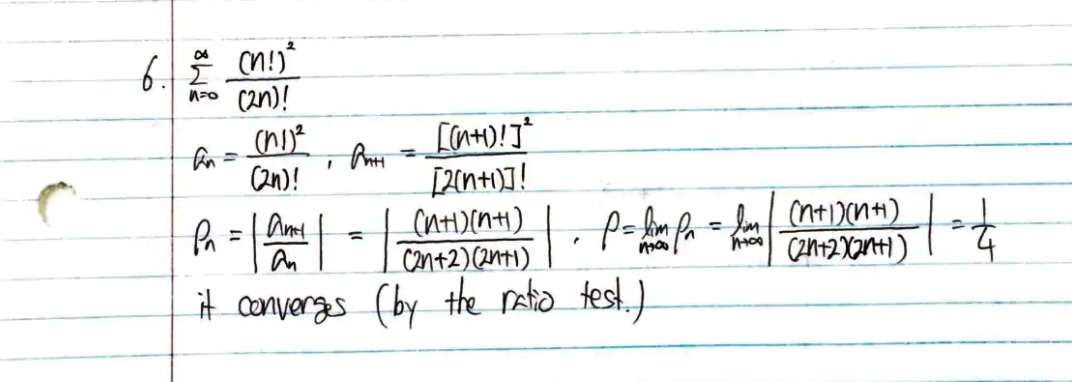 6. $\sum_{n=0}^{\infty} \frac{(n!)^2}{(2n)!}$
$a_n = \frac{(n!)^2}{(2n)!}$ , $a_{n+1} = \frac{[(n+1)!]^2}{[2(n+1)]!}$
$\rho_n = \left| \frac{a_{n+1}}{a_n} \right| = \left| \frac{(n+1)(n+1)}{(2n+2)(2n+1)} \right|$ . $\rho = \lim_{n \to \infty} \rho_n = \lim_{n \to \infty} \left| \frac{(n+1)(n+1)}{(2n+2)(2n+1)} \right| = \frac{1}{4}$
it converges (by the ratio test.)